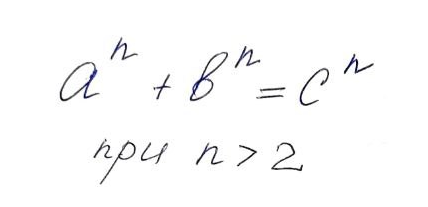 aⁿ + bⁿ = cⁿ
при n > 2